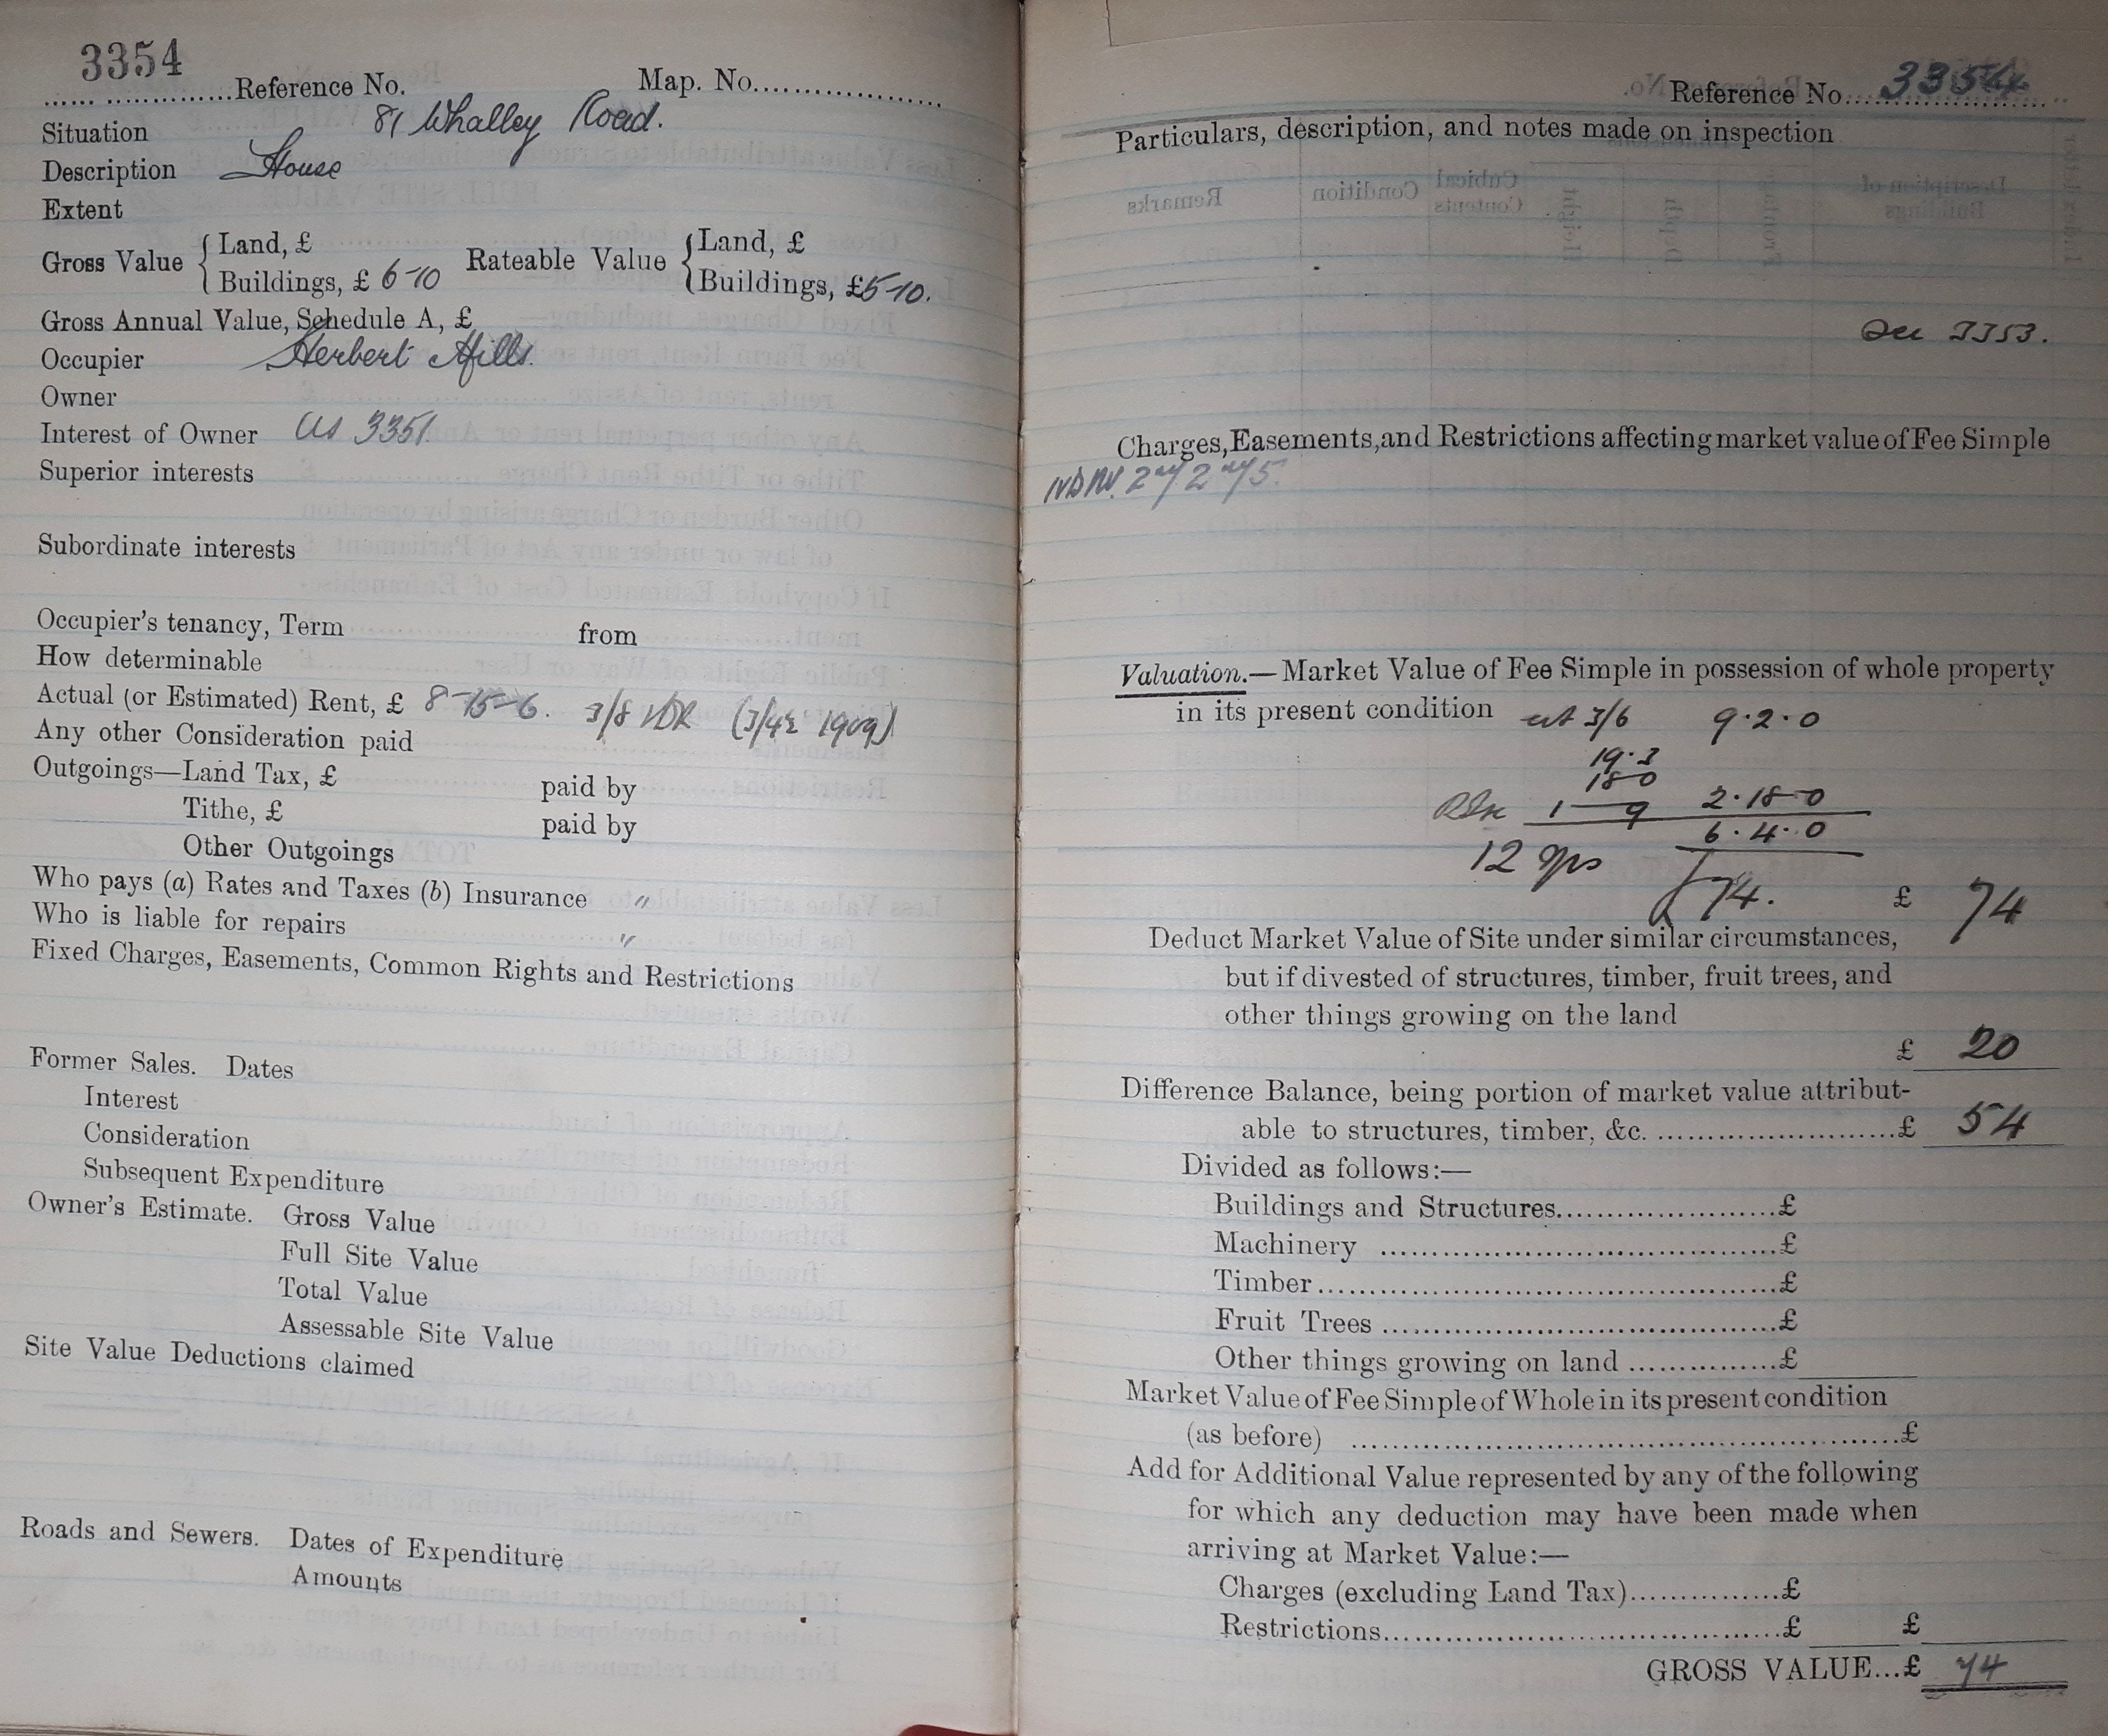 3354
Reference No. Map. No.
Situation 81 Whalley Road.
Description House
Extent
Gross Value { Land, £ Rateable Value { Land, £
Buildings, £ 6-10 Buildings, £5-10.
Gross Annual Value, Schedule A, £
Occupier Herbert Mills.
Owner
Interest of Owner as 3351.
Superior interests
Subordinate interests
Occupier's tenancy, Term from
How determinable
Actual (or Estimated) Rent, £ 8-15-6. 3/8 (3/4½ 1909)
Any other Consideration paid
Outgoings—Land Tax, £ paid by
Tithe, £ paid by
Other Outgoings
Who pays (a) Rates and Taxes (b) Insurance "
Who is liable for repairs "
Fixed Charges, Easements, Common Rights and Restrictions
Former Sales. Dates
Interest
Consideration
Subsequent Expenditure
Owner's Estimate. Gross Value
Full Site Value
Total Value
Assessable Site Value
Site Value Deductions claimed
Roads and Sewers. Dates of Expenditure
Amounts
Reference No. 3354
Particulars, description, and notes made on inspection
See 3353.
Charges, Easements, and Restrictions affecting market value of Fee Simple
Valuation.—Market Value of Fee Simple in possession of whole property
in its present condition at 3/6 9.2.0
19.3
18-0
1—9 2.18-0
6.4.0
12 yps £74. £ 74
Deduct Market Value of Site under similar circumstances,
but if divested of structures, timber, fruit trees, and
other things growing on the land
£ 20
Difference Balance, being portion of market value attribut-
able to structures, timber, &c. ..........£ 54
Divided as follows:—
Buildings and Structures..........£
Machinery ..........£
Timber..........£
Fruit Trees ..........£
Other things growing on land ..........£
Market Value of Fee Simple of Whole in its present condition
(as before) ..........£
Add for Additional Value represented by any of the following
for which any deduction may have been made when
arriving at Market Value:—
Charges (excluding Land Tax)..........£
Restrictions..........£ £
GROSS VALUE...£ 74